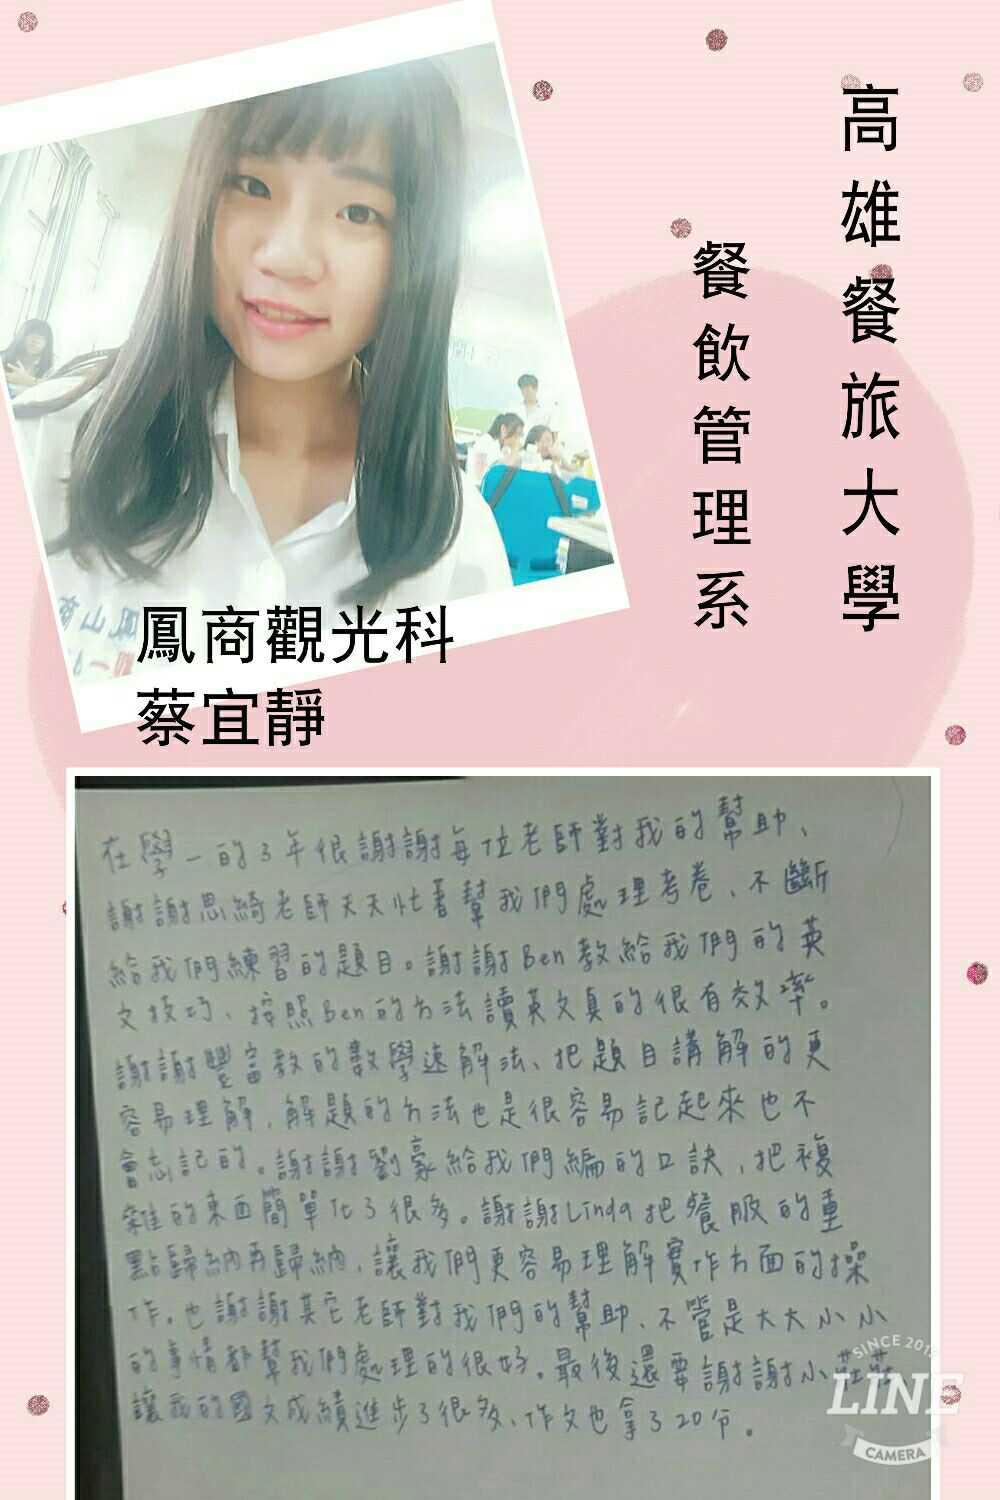 高雄餐旅大學
餐飲管理系
鳳商觀光科
蔡宜靜
在學一的3年很謝謝每位老師對我的幫助、
謝謝思綺老師天天忙著幫我們處理考卷、不斷
給我們練習的題目。謝謝Ben教給我們的英
文技巧、按照Ben的方法讀英文真的很有效率。
謝謝豐富教的數學速解法、把題目講解的更
容易理解，解題的方法也是很容易記起來也不
會忘記的。謝謝劉豪給我們編的口訣，把複
雜的東西簡單化了很多。謝謝Linda把餐服的重
點歸納再歸納，讓我們更容易理解實作方面的操
作。也謝謝其它老師對我們的幫助、不管是大大小小
的事情都幫我們處理的很好。最後還要謝謝小莊莊
讓我的國文成績進步了很多、作文也拿了20分。
SINCE 2012
LINE
CAMERA